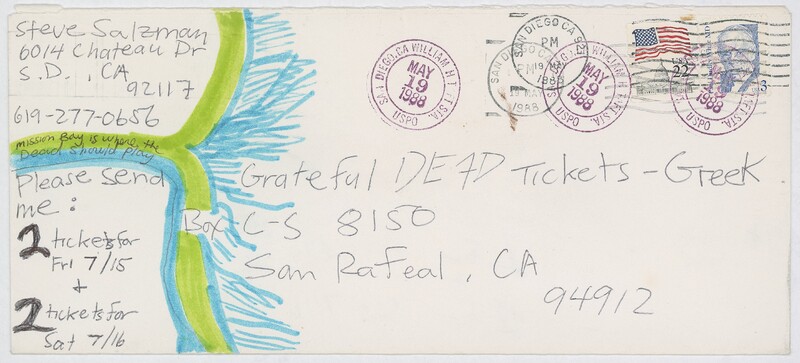 Steve Salzman
6014 Chateau Dr
S.D., CA
92117
619-277-0656
Mission Bay is where the
Dead should play
Please send
me:
2 tickets for
Fri 7/15
+
2 tickets for
Sat 7/16
SAN DIEGO, CA WILLIAM H. TAFT STA.
MAY
19
1988
USPO
SAN DIEGO CA 921
PM
19 MAY
1988
SAN DIEGO CA
PM
19 MAY
1988
MAY
19
1988
USPO
WILLIAM H. TAFT STA.
1988
USPO
USA
22
Grateful DEAD Tickets - Greek
Box C-S 8150
San Rafeal, CA
94912